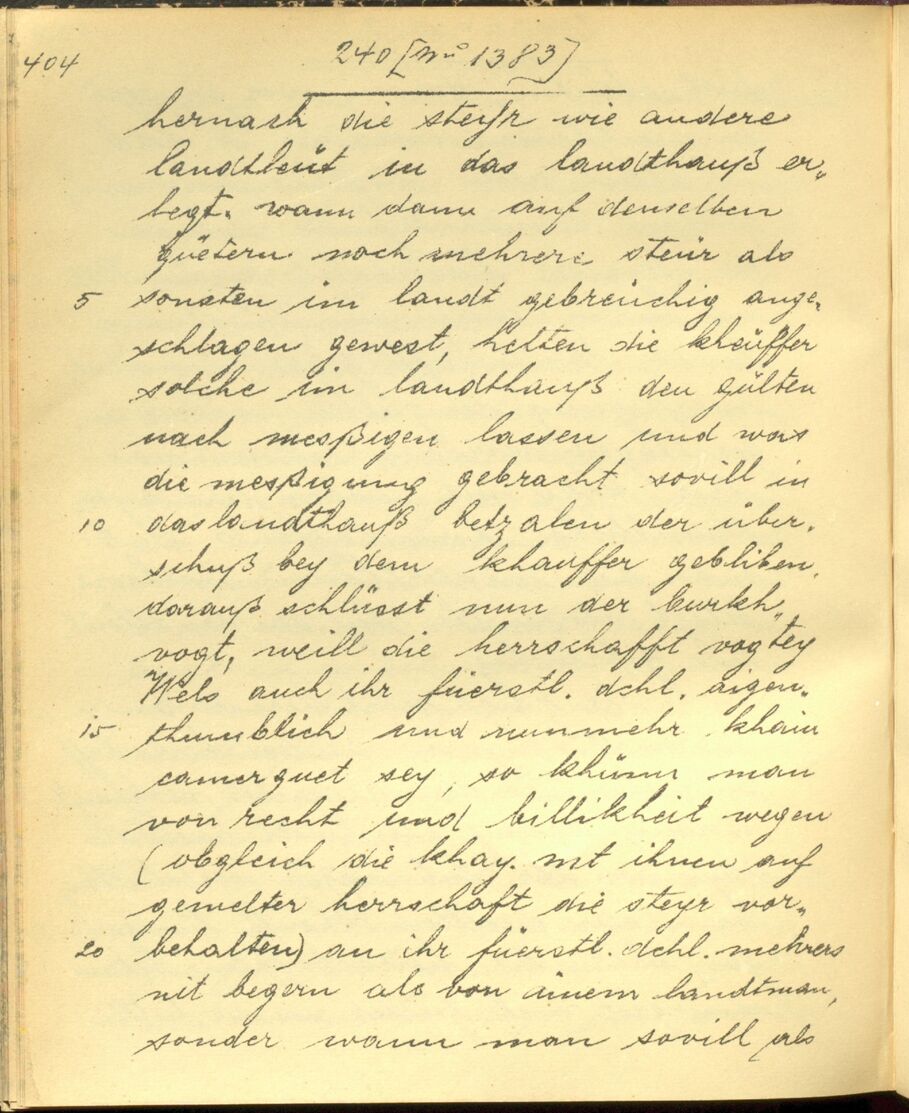 404
240 [No 1383]
hernach die steyr wie andere
landtleüt in das landthauß er„
legt. wann dann auf denselben
güetern noch mehrere steür als
5 sonsten im landt gebreüchig ange„
schlagen gewest, hetten die kheüffer
solche im landthauß den gülten
nach meßigen lassen und was
die meßigung gebracht sovill in
10 das landthauß betzalen der über„
schuß bey dem khauffer gebliben.
darauß schlüsst nun der burkh„
vogt, weill die herrschafft vogtey
Wels auch ihr füerstl. dchl. aigen„
15 thumblich und nunmehr khain
camerguet sey, so khünn man
von recht und billikheit wegen
(obgleich die khay. mt ihnen auf
gemelter herrschaft die steyr vor„
20 behalten) an ihr füerstl. dchl. mehrers
nit begern als von ainem landtman,
sonder wann man sovill als